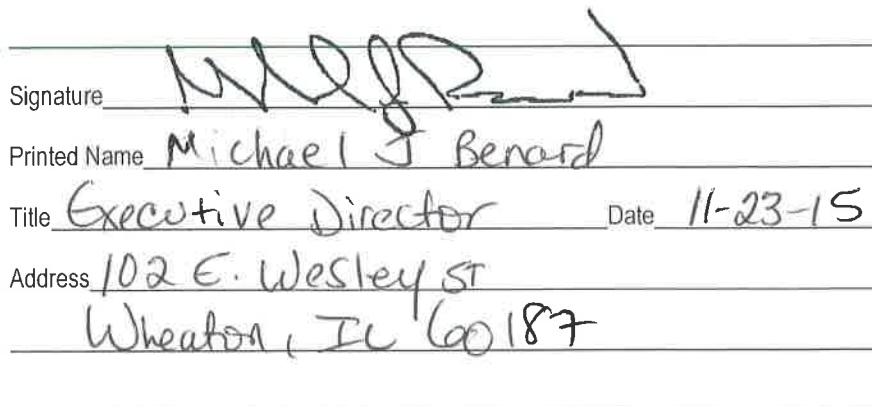 Signature
Printed Name Michael J Benard
Title Executive Director Date 11-23-15
Address 102 E. Wesley ST
Wheaton, IL 60187